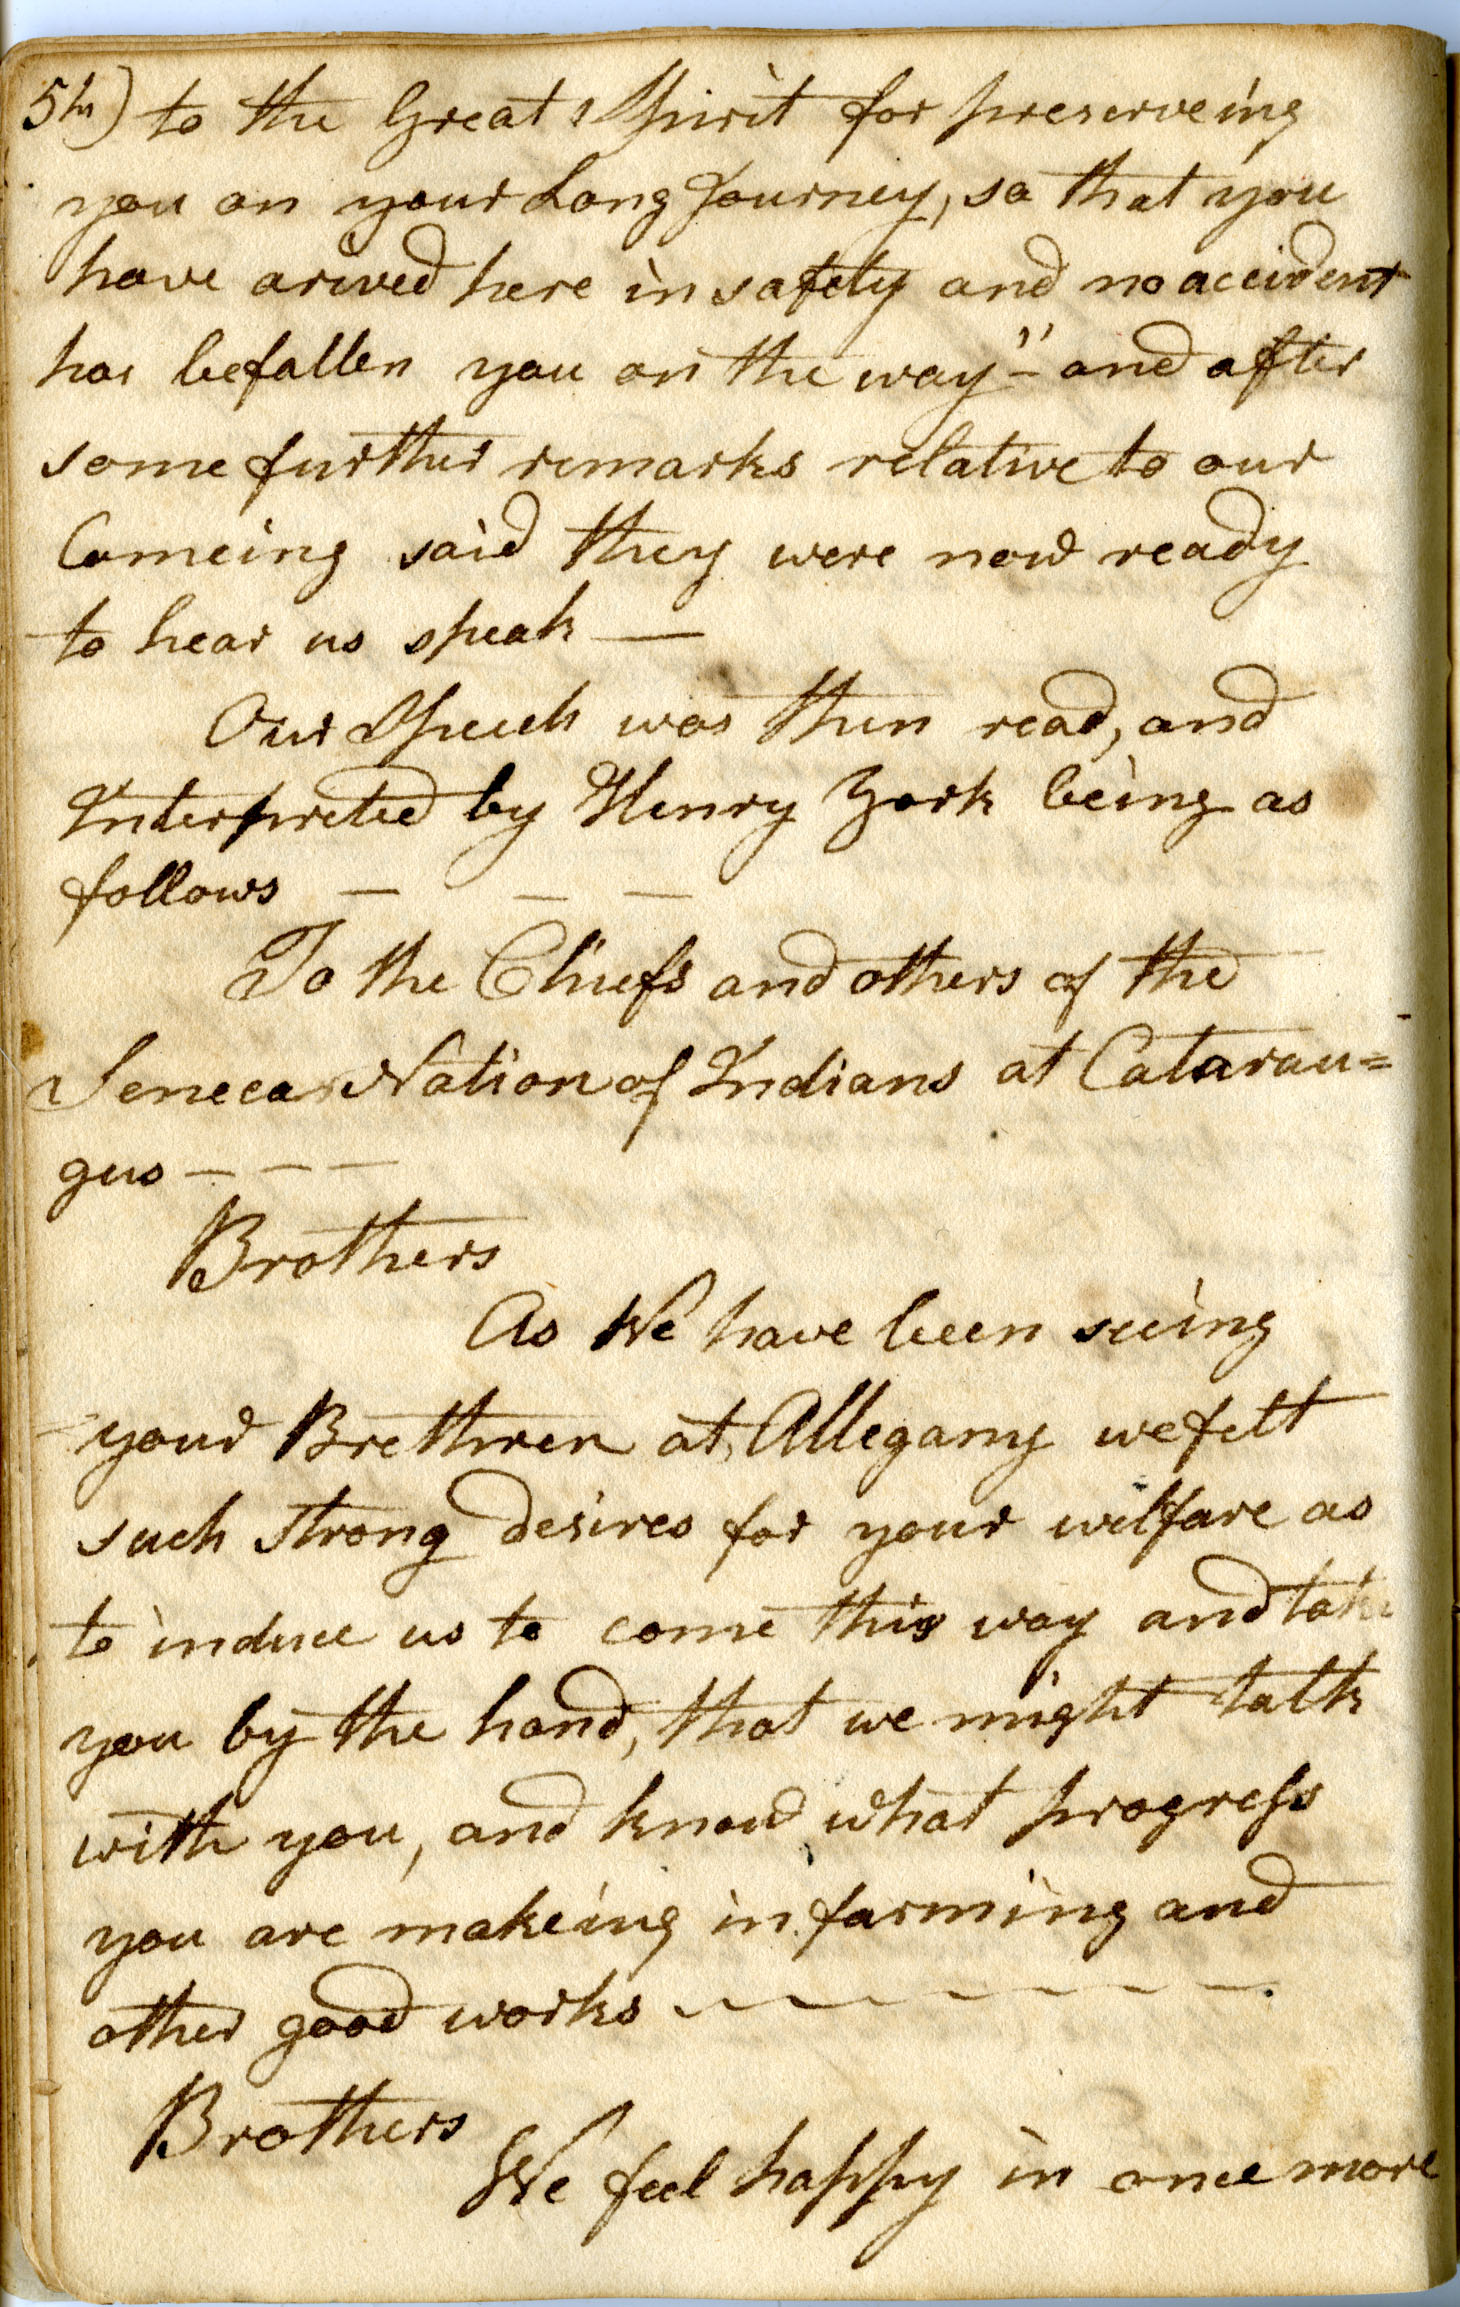 5th) to the Great Spirit for preserveing
you on your Long Journey, so that you
have arived here in safety and no accident
has befallen you on the way" - and after
some further remarks relative to our
Comeing said they were now ready
to hear us speak —
Our Speech was then read, and
Interpreted by Henry York being as
follows — — —
To the Chiefs and others of the
Seneca Nation of Indians at Catarau=
gus - - -
Brothers
As We have been seeing
your Brethren at Allegany we felt
such strong desires for your welfare as
to induce us to come this way and take
you by the hand, that we might talk
with you, and know what progress
you are makeing in farming and
other good works - - - - - - -.
Brothers
We feel happy in once more